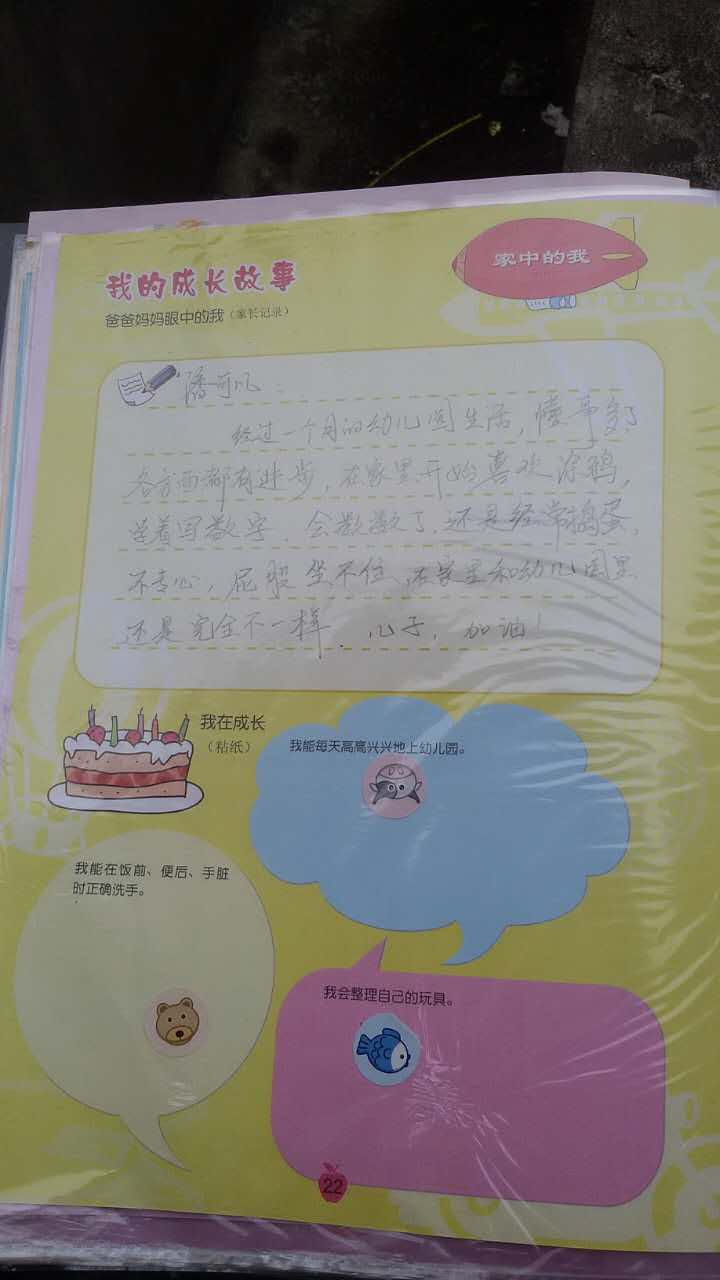 家中的我
我的成长故事
爸爸妈妈眼中的我（家长记录）
潘可凡：
经过一个月的幼儿园生活，懂事多了
各方面都有进步，在家里开始喜欢涂鸦，
学着写数字，会数数了，还是经常捣蛋，
不专心，屁股坐不住，在家里和幼儿园里
还是完全不一样。儿子，加油！
我在成长
（粘纸）
我能每天高高兴兴地上幼儿园。
我能在饭前、便后、手脏
时正确洗手。
我会整理自己的玩具。
22